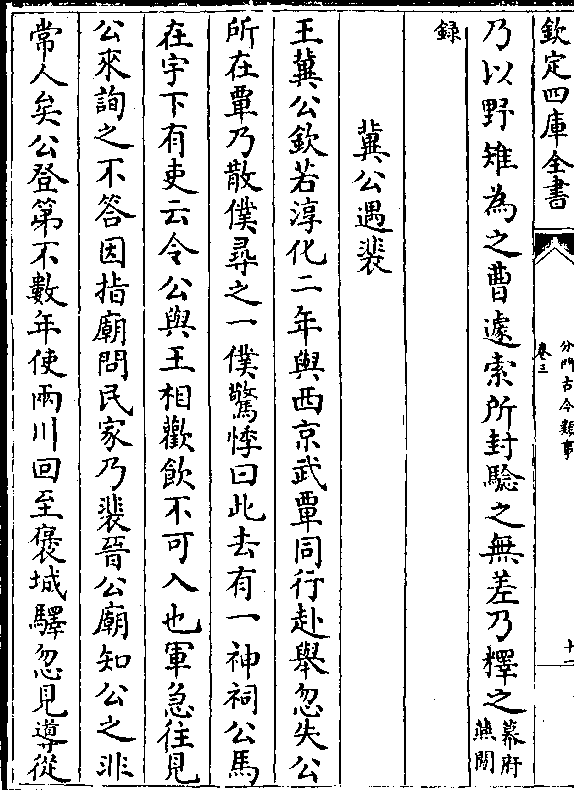 欽定四庫全書
分門古今類事
卷三
十一
乃以野雉為之曹遽索所封驗之無差乃釋之幕府燕閒
録
冀公遇裴
王冀公欽若淳化二年與西京武覃同行赴舉忽失公
所在覃乃散僕尋之一僕驚悸曰此去有一神祠公馬
在宇下有吏云令公與王相歡飲不可入也覃急往見
公來詢之不答因指廟問民家乃裴晉公廟知公之非
常人矣公登第不數年使兩川回至褒城驛忽見導從